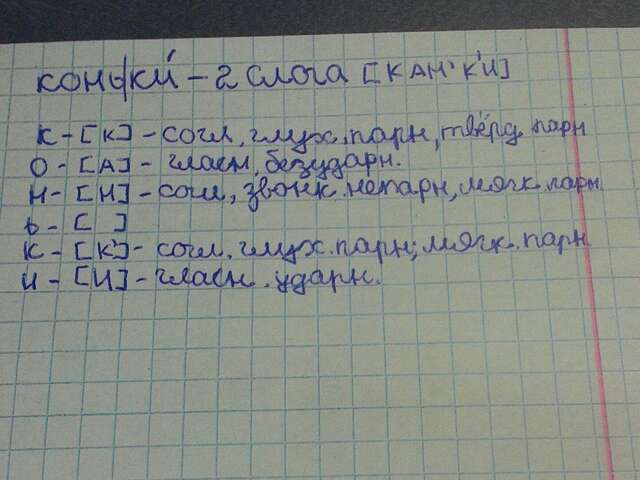 коньки́ - 2 слога [кан'к'и]
к - [к] - согл, глух. парн, твёрд парн
о - [а] - гласн, безударн.
н - [н] - согл, звонк. непарн, мягк. парн
ь - [ ]
к - [к'] - согл. глух. парн; мягк. парн
и - [и] - гласн. ударн.